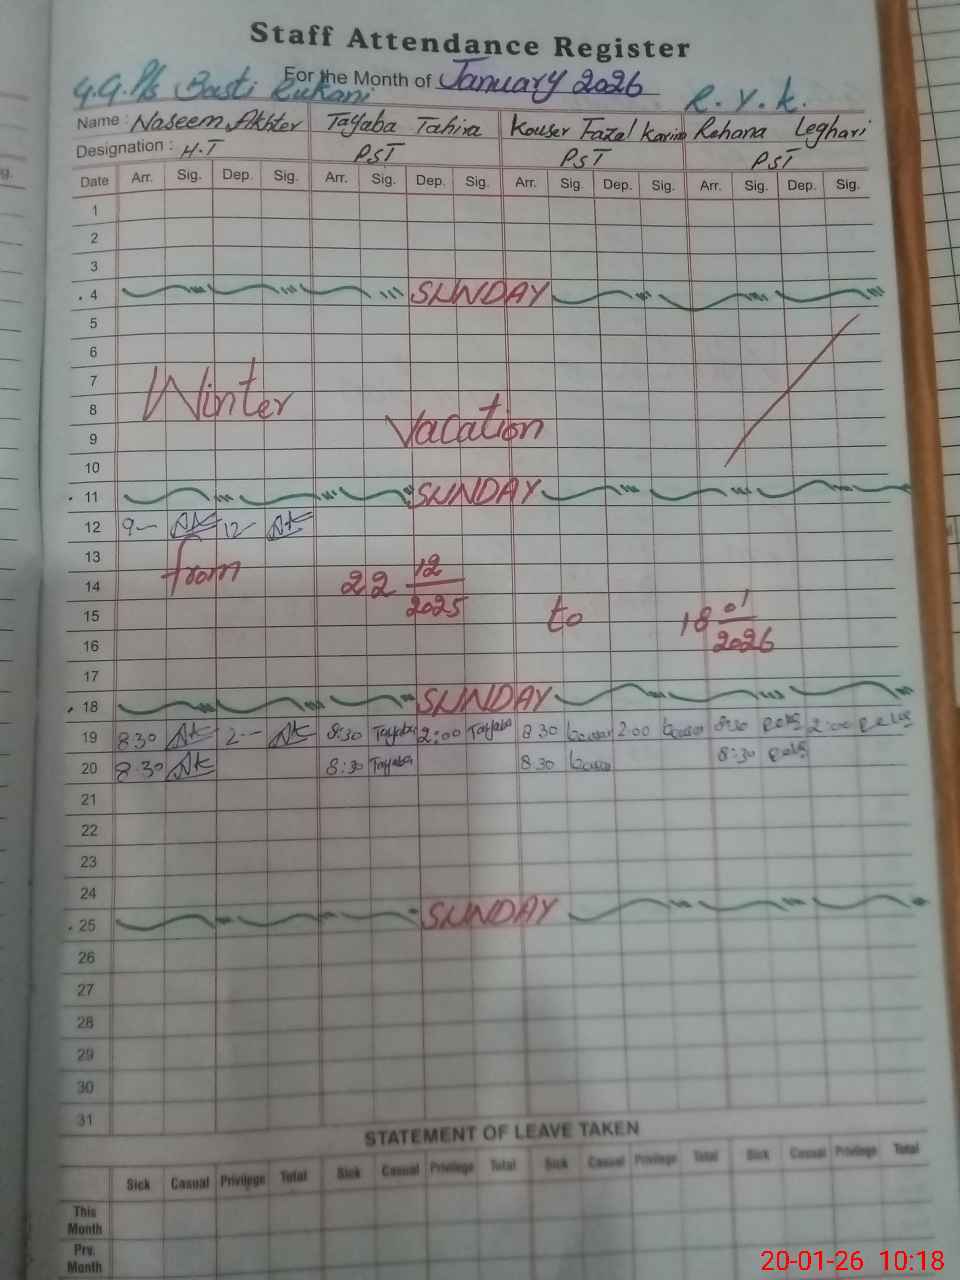 Staff Attendance Register
For the Month of January 2026
G.G.P/s Basti Rukani R.Y.K.
Name : Naseem Akhter Tayaba Tahira Kouser Fazal Karim Rehana Leghari
Designation : H.T PST PST PST
Date Arr. Sig. Dep. Sig. Arr. Sig. Dep. Sig. Arr. Sig. Dep. Sig. Arr. Sig. Dep. Sig.
1
2
3
4 SUNDAY
5
6
7
Winter
8
Vacation
9
10
11 SUNDAY
12 9- 12-
13
from 22 12/2025 to 18 01/2026
14
15
16
17
18 SUNDAY
19 8:30 2- 8:30 Tayaba 2:00 Tayaba 8:30 2:00 8:30 2:00
20 8:30 8:30 Tayaba 8:30 8:30
21
22
23
24
25 SUNDAY
26
27
28
29
30
31
STATEMENT OF LEAVE TAKEN
Sick Casual Privilege Total Sick Casual Privilege Total Sick Casual Privilege Total Sick Casual Privilege Total
This
Month
Prv.
Month
20-01-26 10:18